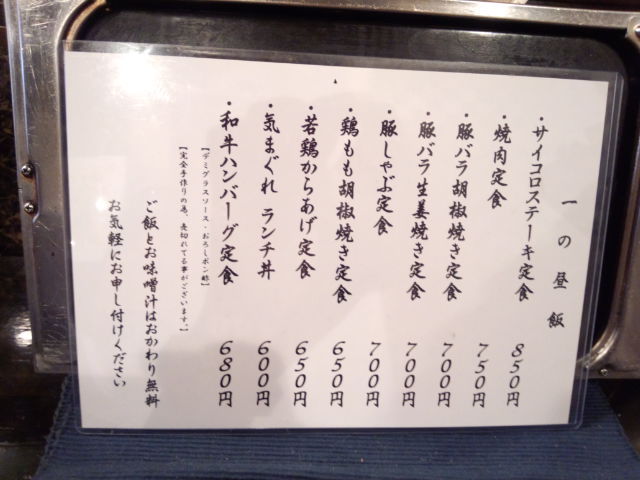 一の昼飯
・サイコロステーキ定食 850円
・焼肉定食 750円
・豚バラ胡椒焼き定食 700円
・豚バラ生姜焼き定食 700円
・豚しゃぶ定食 700円
・鶏もも胡椒焼き定食 650円
・若鶏からあげ定食 650円
・気まぐれ ランチ丼 600円
・和牛ハンバーグ定食 680円
【デミグラスソース・おろしポン酢】
【完全手作りの為、売切れてる事がございます。】
ご飯とお味噌汁はおかわり無料
お気軽にお申し付けください